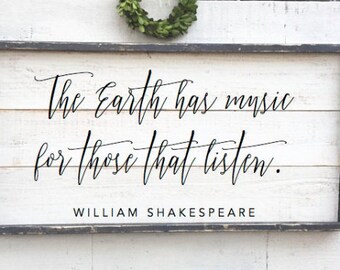 The Earth has music
for those that listen.
WILLIAM SHAKESPEARE